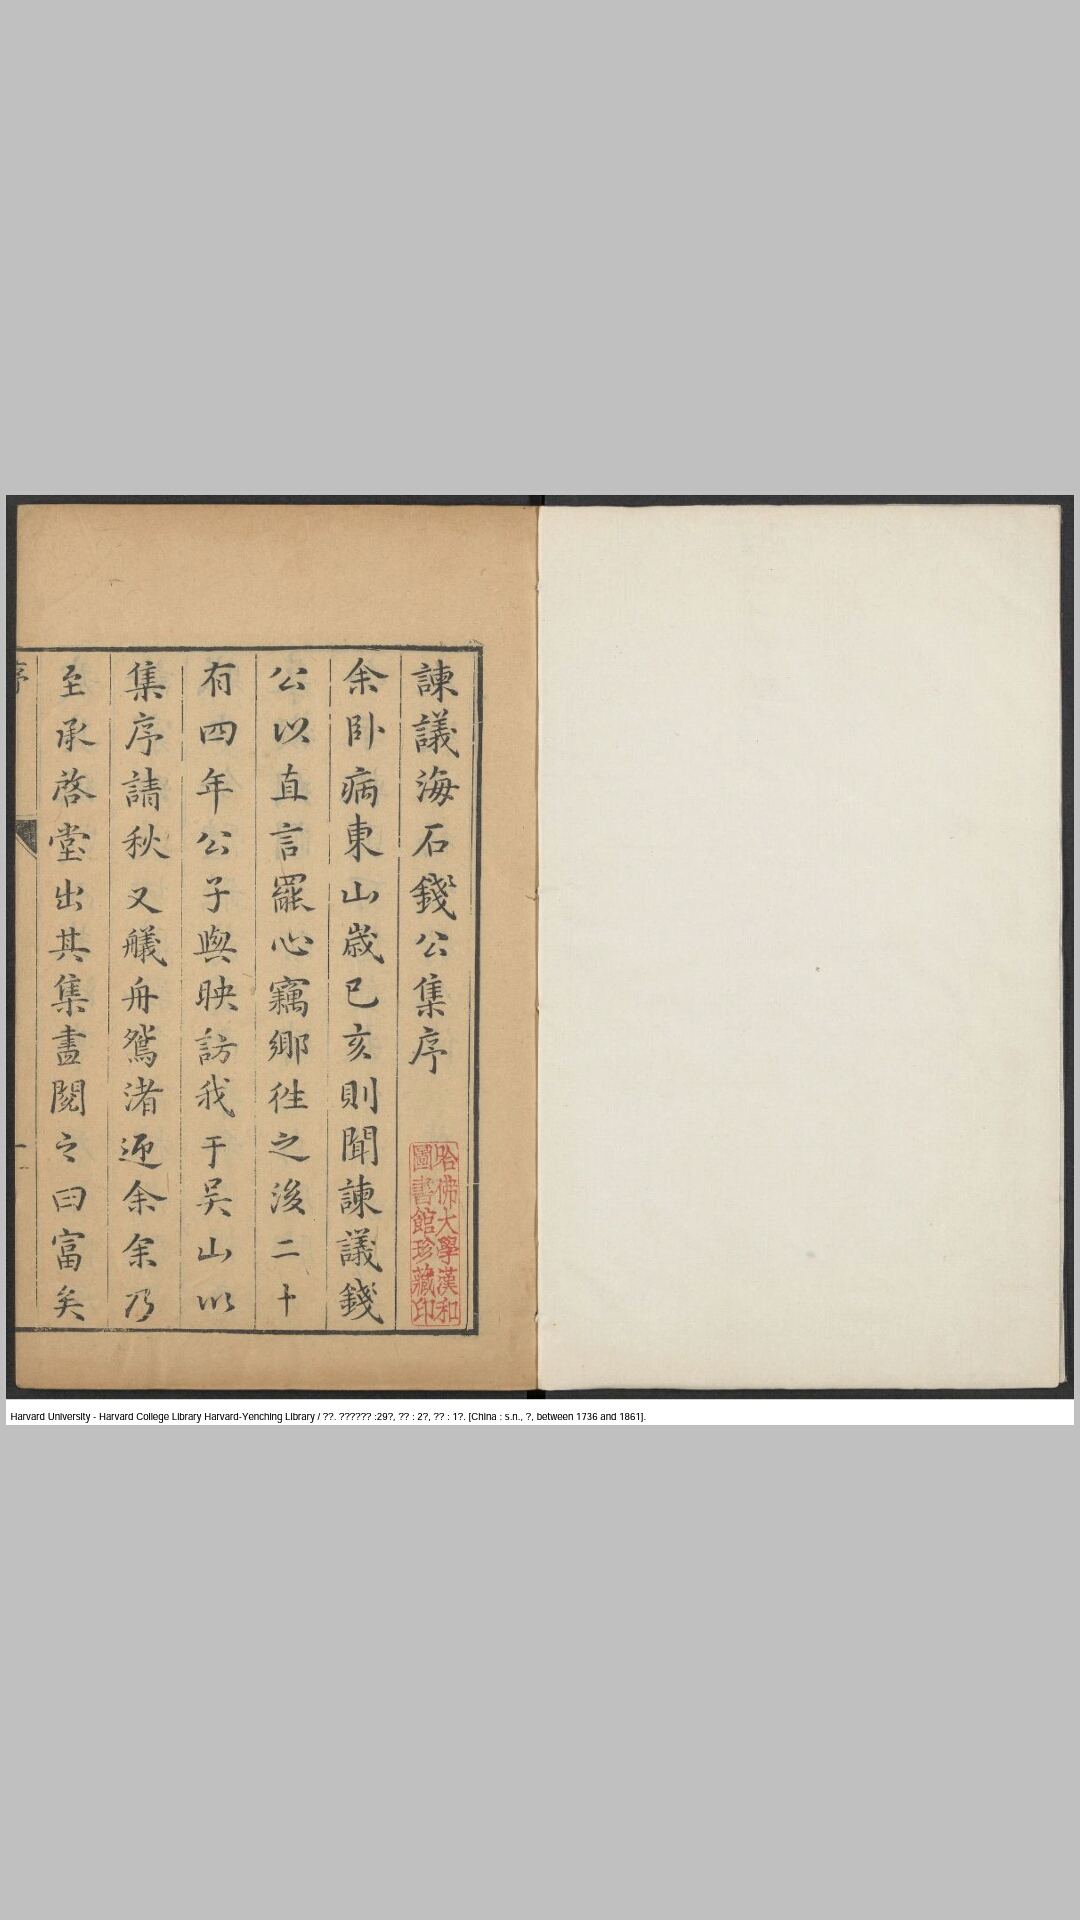 諫議海石錢公集序
余卧病東山歲已亥則聞諫議錢
公以直言罷心竊鄉徃之後二十
有四年公子與映訪我于吴山以
集序請秋又艤舟鴛渚迎余余乃
至承啓堂出其集盡閱之曰富矣
序
一
哈佛大學漢和
圖書館珍藏印
Harvard University - Harvard College Library Harvard-Yenching Library / ??. ?????? :29?, ?? : 2?, ?? : 1?. [China : s.n., ?, between 1736 and 1861].